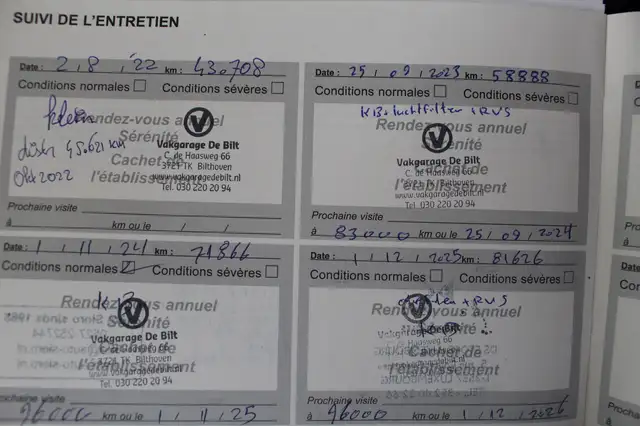 SUIVI DE L'ENTRETIEN
Date : 2 / 8 / '22 km : 43.708
Conditions normales Conditions sévères
klein
Rendez-vous annuel
Sérénité
45.621 km
Okt 2022
Cachet de
l'établissement
Vakgarage De Bilt
C. de Haasweg 66
3721 TK Bilthoven
www.vakgaragedebilt.nl
Tel. 030 220 20 94
Prochaine visite
à km ou le / /
Date : 25 / 09 / 2023 km : 58888
Conditions normales Conditions sévères
KB + luchtfilter + RVS
Rendez-vous annuel
Sérénité
Cachet de
l'établissement
Vakgarage De Bilt
C. de Haasweg 66
3721 TK Bilthoven
www.vakgaragedebilt.nl
Tel. 030 220 20 94
Prochaine visite
à 83000 km ou le 25 / 09 / 2024
Date : 1 / 11 / 24 km : 71866
Conditions normales Conditions sévères
Rendez-vous annuel
Sérénité
Cachet de
l'établissement
Vakgarage De Bilt
C. de Haasweg 66
3721 TK Bilthoven
www.vakgaragedebilt.nl
Tel. 030 220 20 94
Prochaine visite
96000 km ou le 1 / 11 / 25
Date : 1 / 12 / 2025 km : 81626
Conditions normales Conditions sévères
+ RVS
Rendez-vous annuel
Sérénité
Cachet de
l'établissement
Vakgarage De Bilt
Prochaine visite
à 96000 km ou le 1 / 12 / 2026